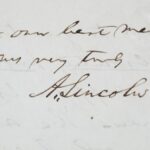 our best me
urs very truly
A. Lincoln